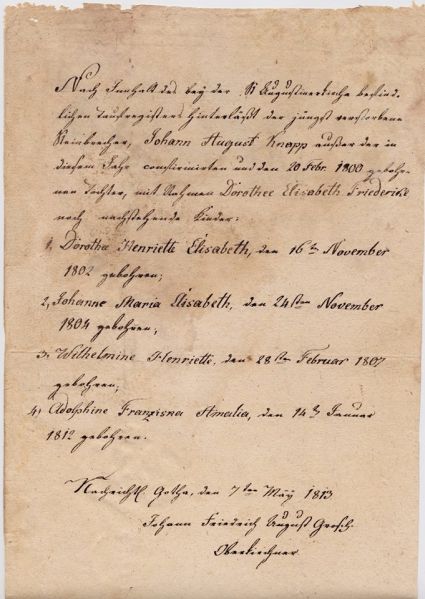 Nach Innhalt des bey der St Augustinerkirche befind-
lichen Taufregisters hinterläßt der jüngst verstorbene
Steinbrecher, Johann August Knapp außer der in
diesem Jahr confirmirten und den 20 Febr. 1800 gebohr-
nen Tochter, mit Nahmen Dorothee Elisabeth Friederike
noch nachstehende Kinder:
1, Dorothee Henriette Elisabeth, den 16ten November
1802 gebohren;
2, Johanne Maria Elisabeth, den 24sten November
1804 gebohren;
3, Wilhelmine Henriette, den 28sten Februar 1807
gebohren;
4, Adolphine Franziska Amalia, den 14ten Januar
1812 gebohren.
Nachrichtl. Gotha, den 7ten May 1813
Johann Friedrich August Grosch.
Oberkirchner